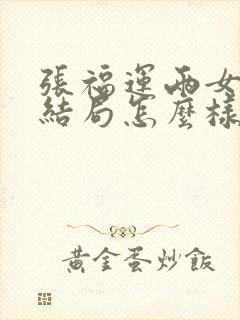 張福運兩女
結局怎麼樣
黃金蛋炒飯